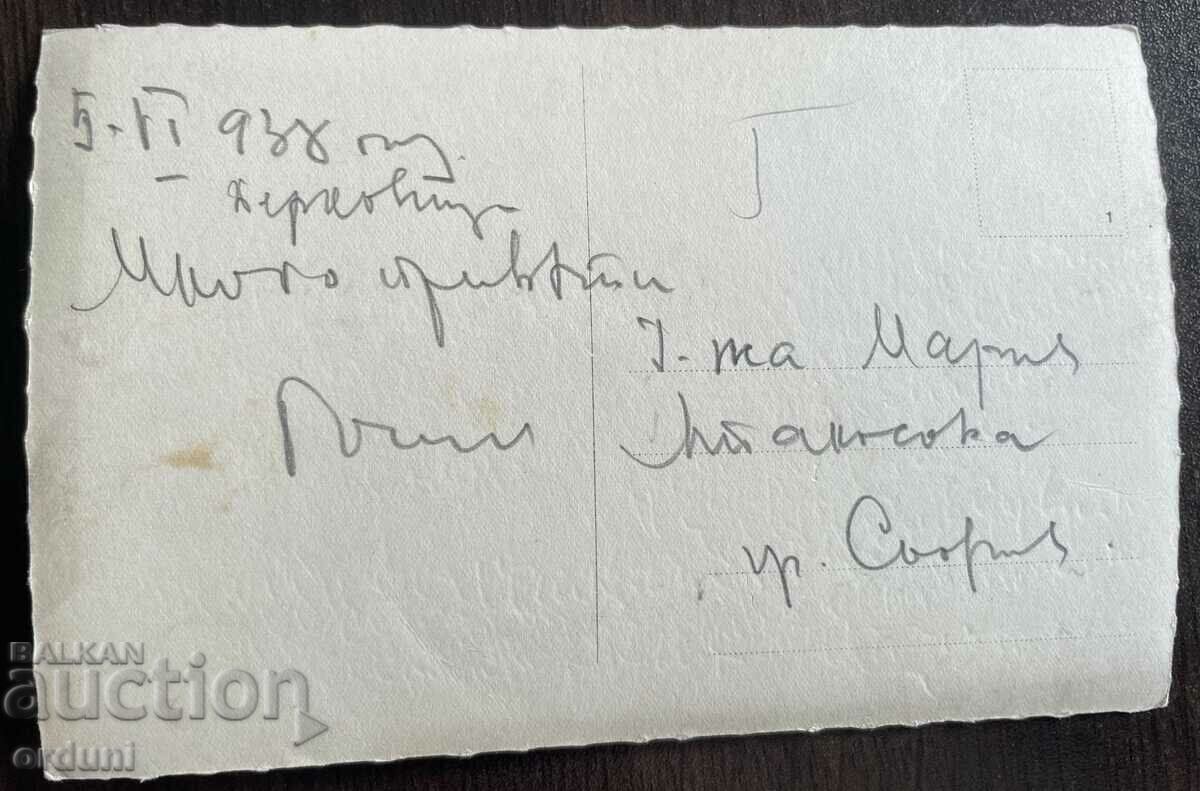 5.-VI 938 год.
Берковица
Много привети
Г-жа Мария
Атанасова
гр. София.
1
BALKAN
auction
orduni